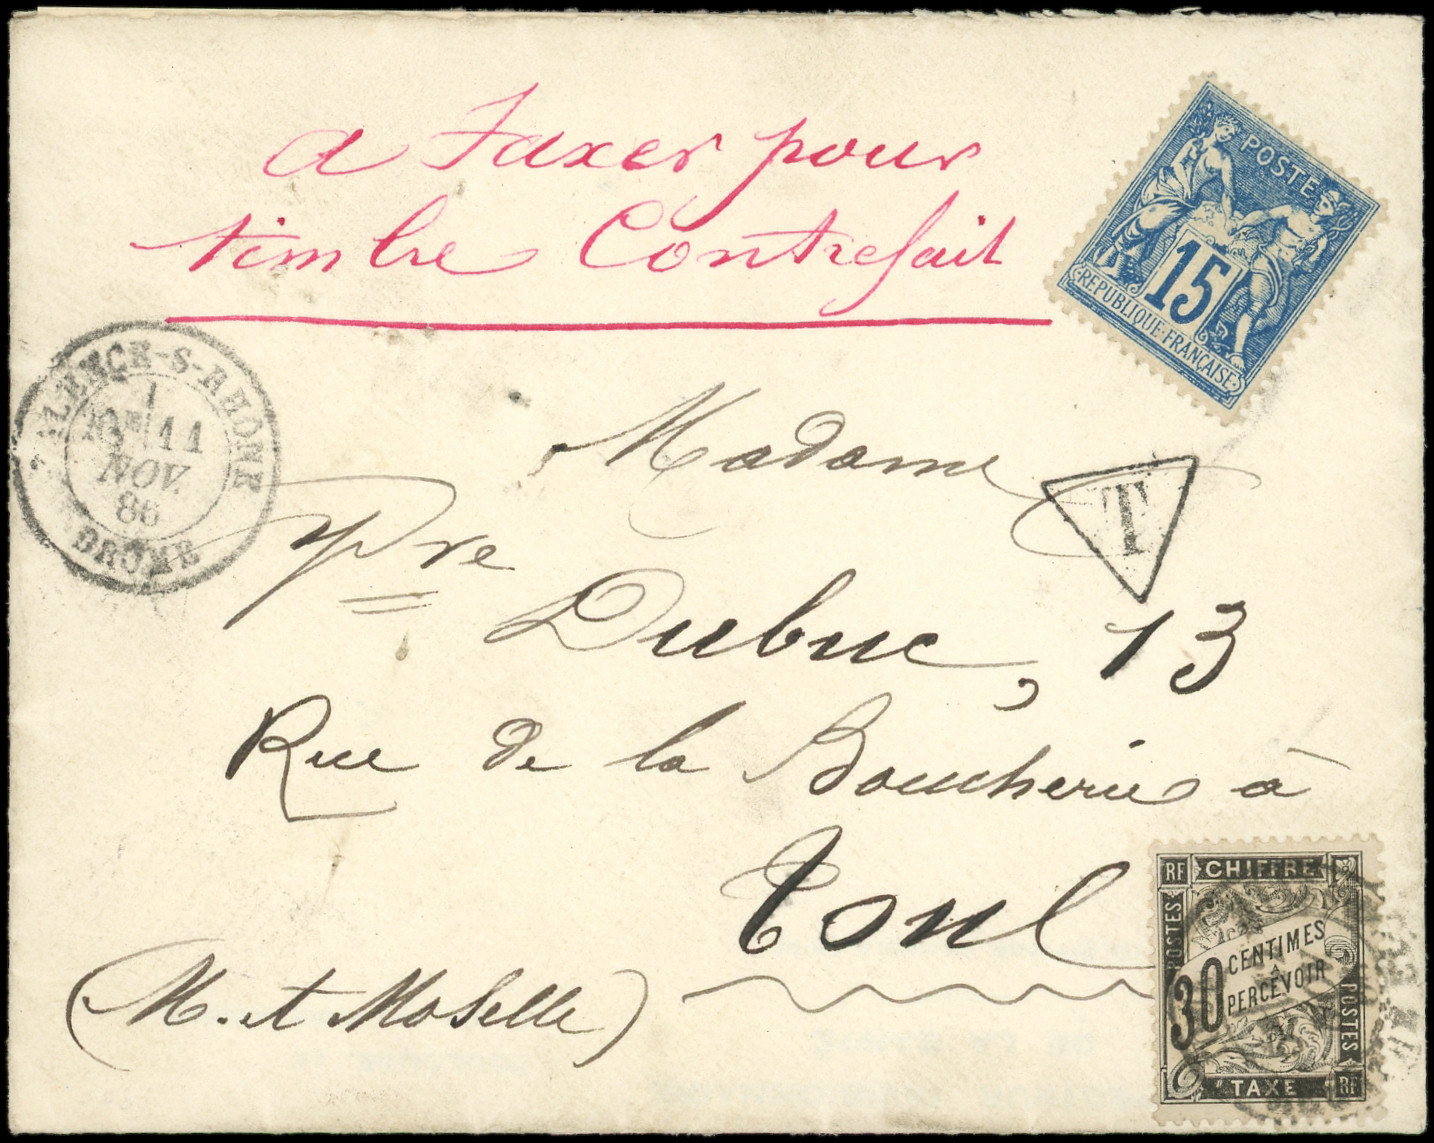 a Taxer pour
timbre Contrefait
POSTE
15
REPUBLIQUE FRANÇAISE
VALENCE-S-RHÔNE
11
NOV.
86
DRÔME
T
Madame
Vve Dubuc, 13
Rue de la Boucherie à
Toul
(M. et Moselle)
RF CHIFFRE
POSTES
30 CENTIMES
À
PERCEVOIR
POSTES
TAXE RF